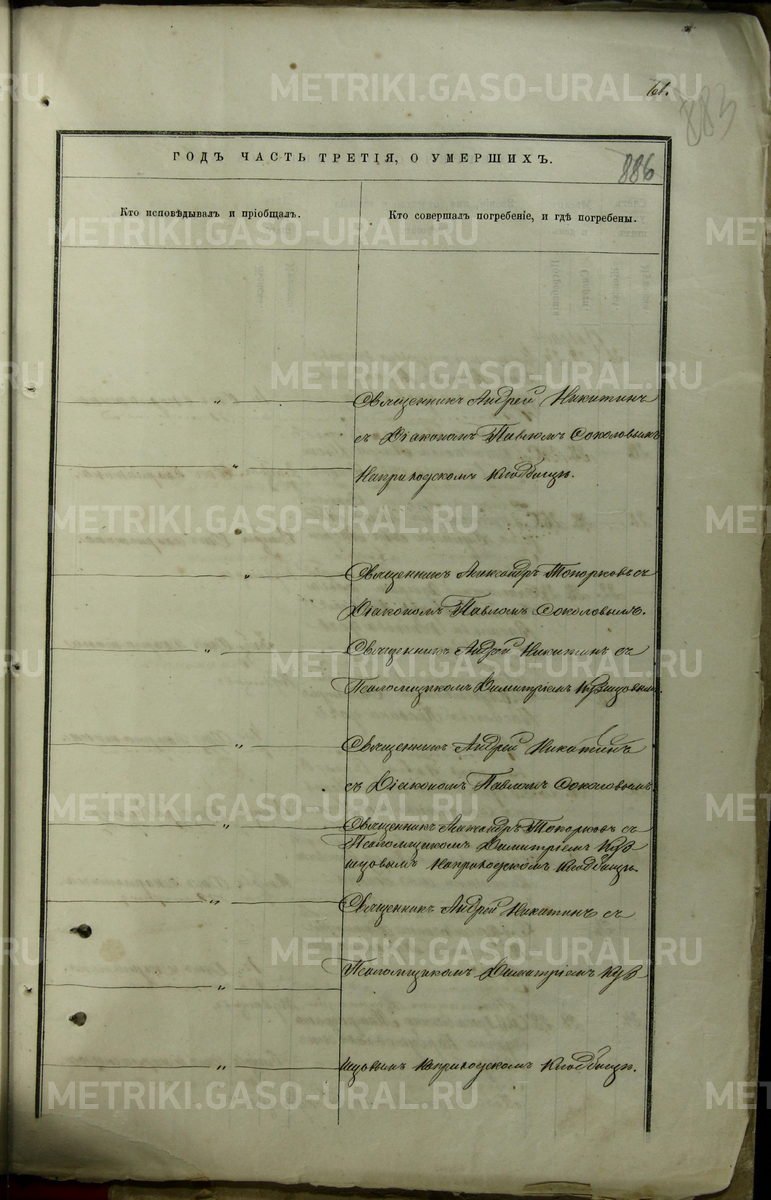 METRIKI.GASO-URAL.RU
883
ГОДЪ ЧАСТЬ ТРЕТІЯ, О УМЕРШИХЪ.
886
Кто исповѣдывалъ и пріобщалъ.
Кто совершалъ погребеніе, и гдѣ погребены.
Священникъ Андрей Никитинъ
съ Діакономъ Павломъ Соколовымъ
на приходскомъ кладбищѣ.
Священникъ Александръ Топорковъ съ
Діакономъ Павломъ Соколовымъ.
Священникъ Андрей Никитинъ съ
Псаломщикомъ Димитріемъ
Священникъ Андрей Никитинъ
съ Діакономъ Павломъ Соколовымъ
Священникъ Александръ Топорковъ съ
Псаломщикомъ Димитріемъ
на приходскомъ кладбищѣ.
Священникъ Андрей Никитинъ съ
Псаломщикомъ Димитріемъ
на приходскомъ кладбищѣ.